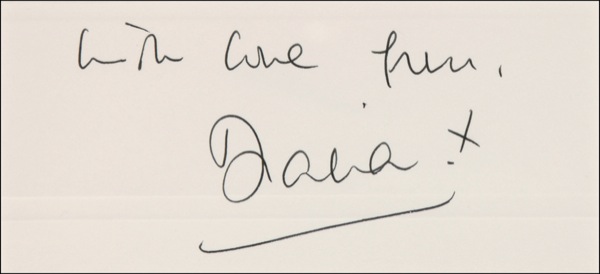 With love from,
Diana. x